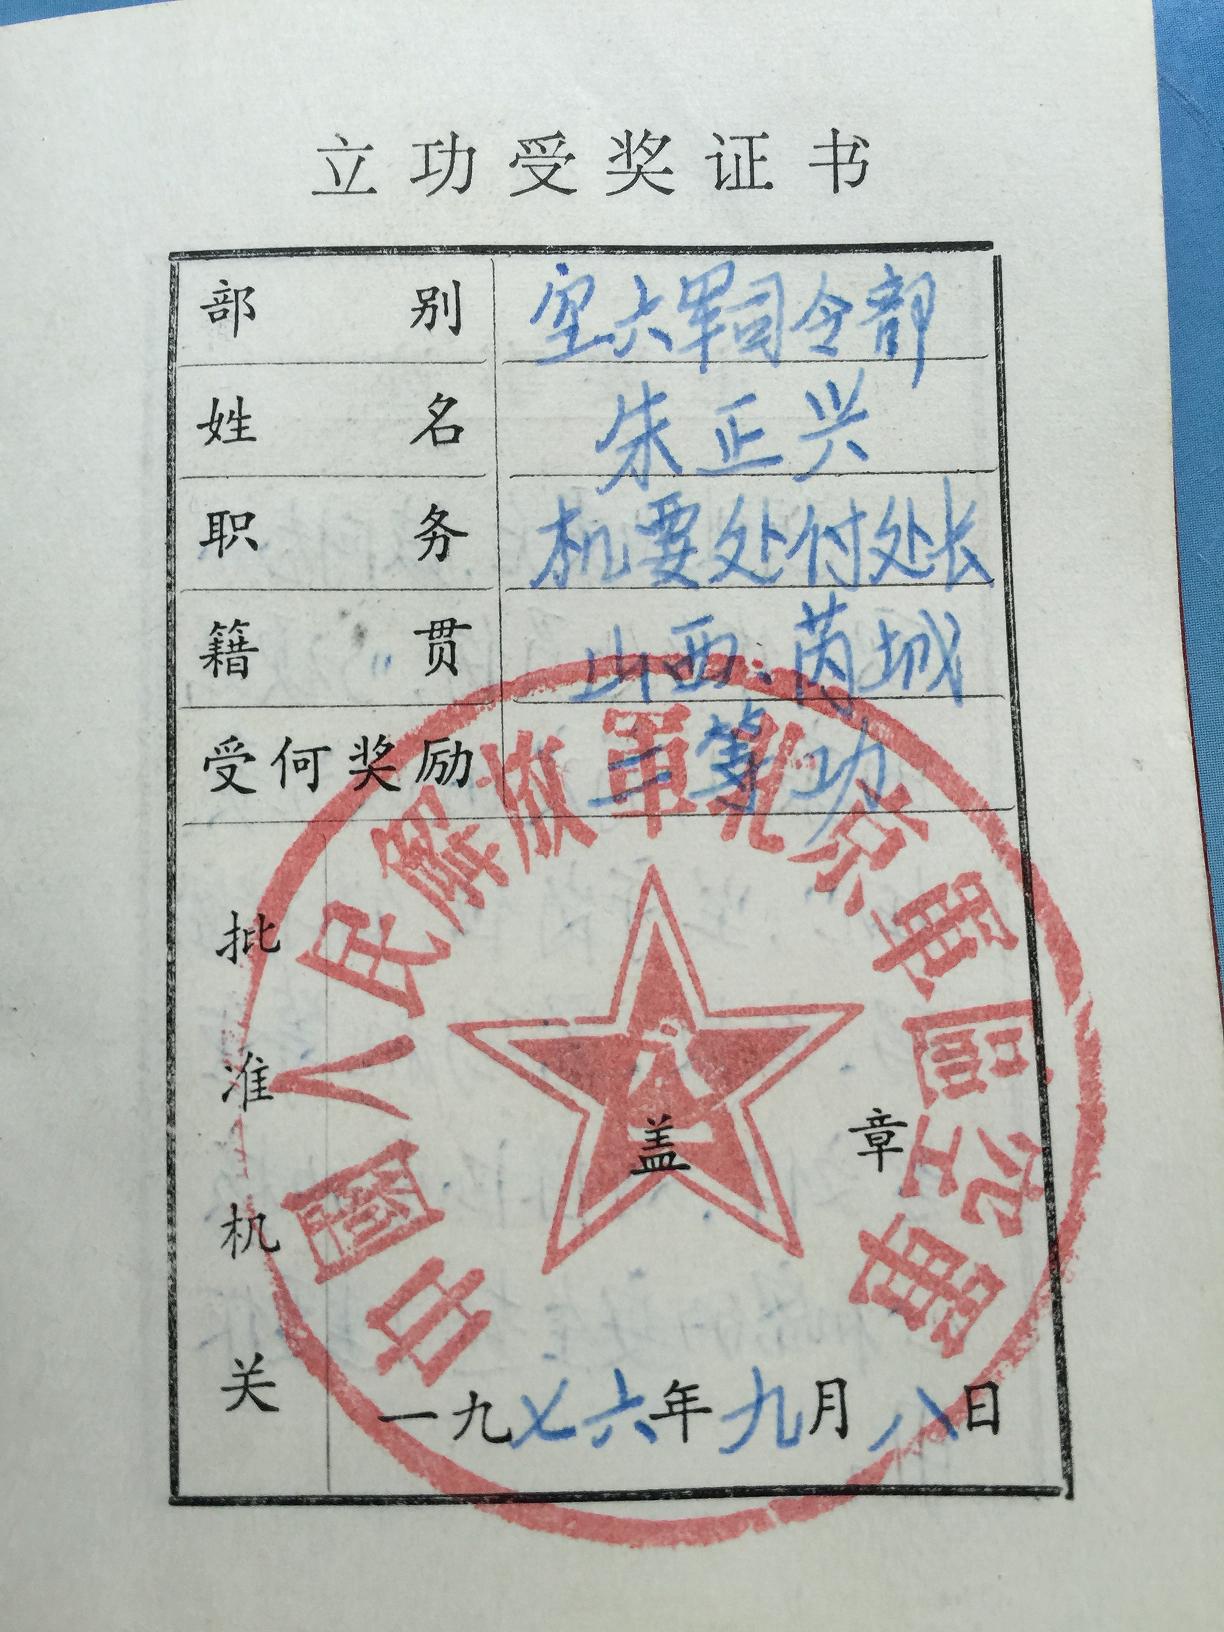 立功受奖证书
部别 空六军司令部
姓名 朱正兴
职务 机要处付处长
籍贯 山西、芮城
受何奖励 三等功
批准机关
中國人民解放軍北京軍區空軍
八一
盖章
一九七六年九月八日